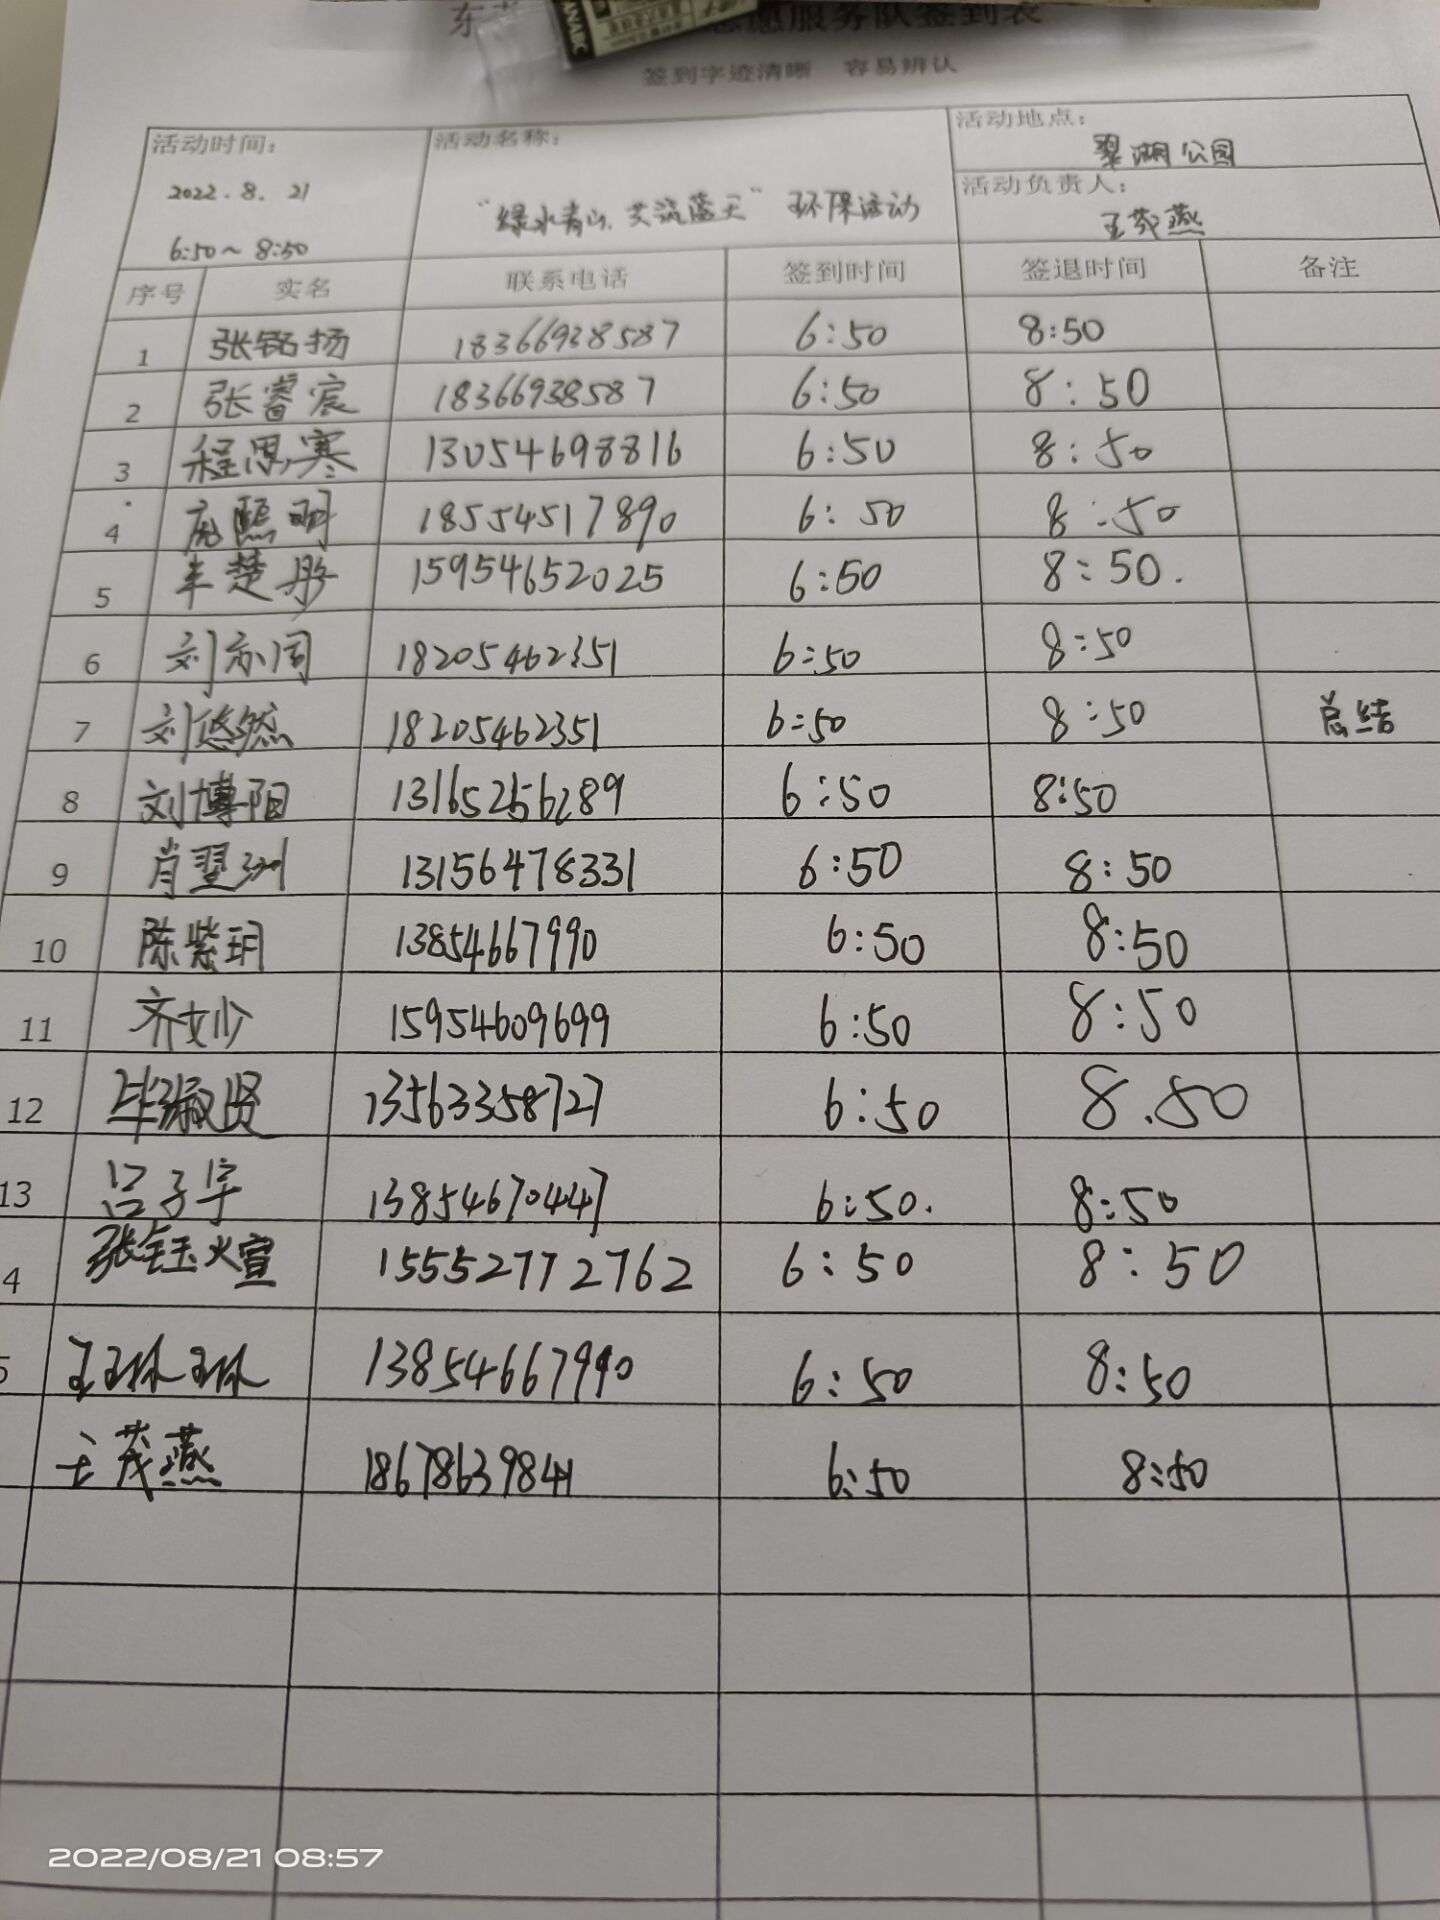 服务队签到表
签到字迹清晰 容易辨认
活动时间: 活动名称: 活动地点:
翠湖公园
2022.8.21 "绿水青山,共筑蓝天"环保活动 活动负责人:
6:50~8:50 王茂燕
序号 实名 联系电话 签到时间 签退时间 备注
1 张铭扬 18366938587 6:50 8:50
2 张睿宸 18366938587 6:50 8:50
3 程思寒 13054698816 6:50 8:50
4 18554517890 6:50 8:50
5 楚彤 15954652025 6:50 8:50.
6 刘亦同 18205462351 6:50 8:50
7 刘悠然 18205462351 6:50 8:50 总结
8 刘博阳 13165256289 6:50 8:50
9 肖翌洲 13156478331 6:50 8:50
10 陈紫玥 13854667990 6:50 8:50
11 齐妙 15954609699 6:50 8:50
12 毕淑贤 13563358727 6:50 8.50
13 吕子宇 13854670447 6:50. 8:50
4 张钰煊 15552772762 6:50 8:50
5 王琳琳 13854667990 6:50 8:50
王茂燕 18678639841 6:50 8:50
2022/08/21 08:57